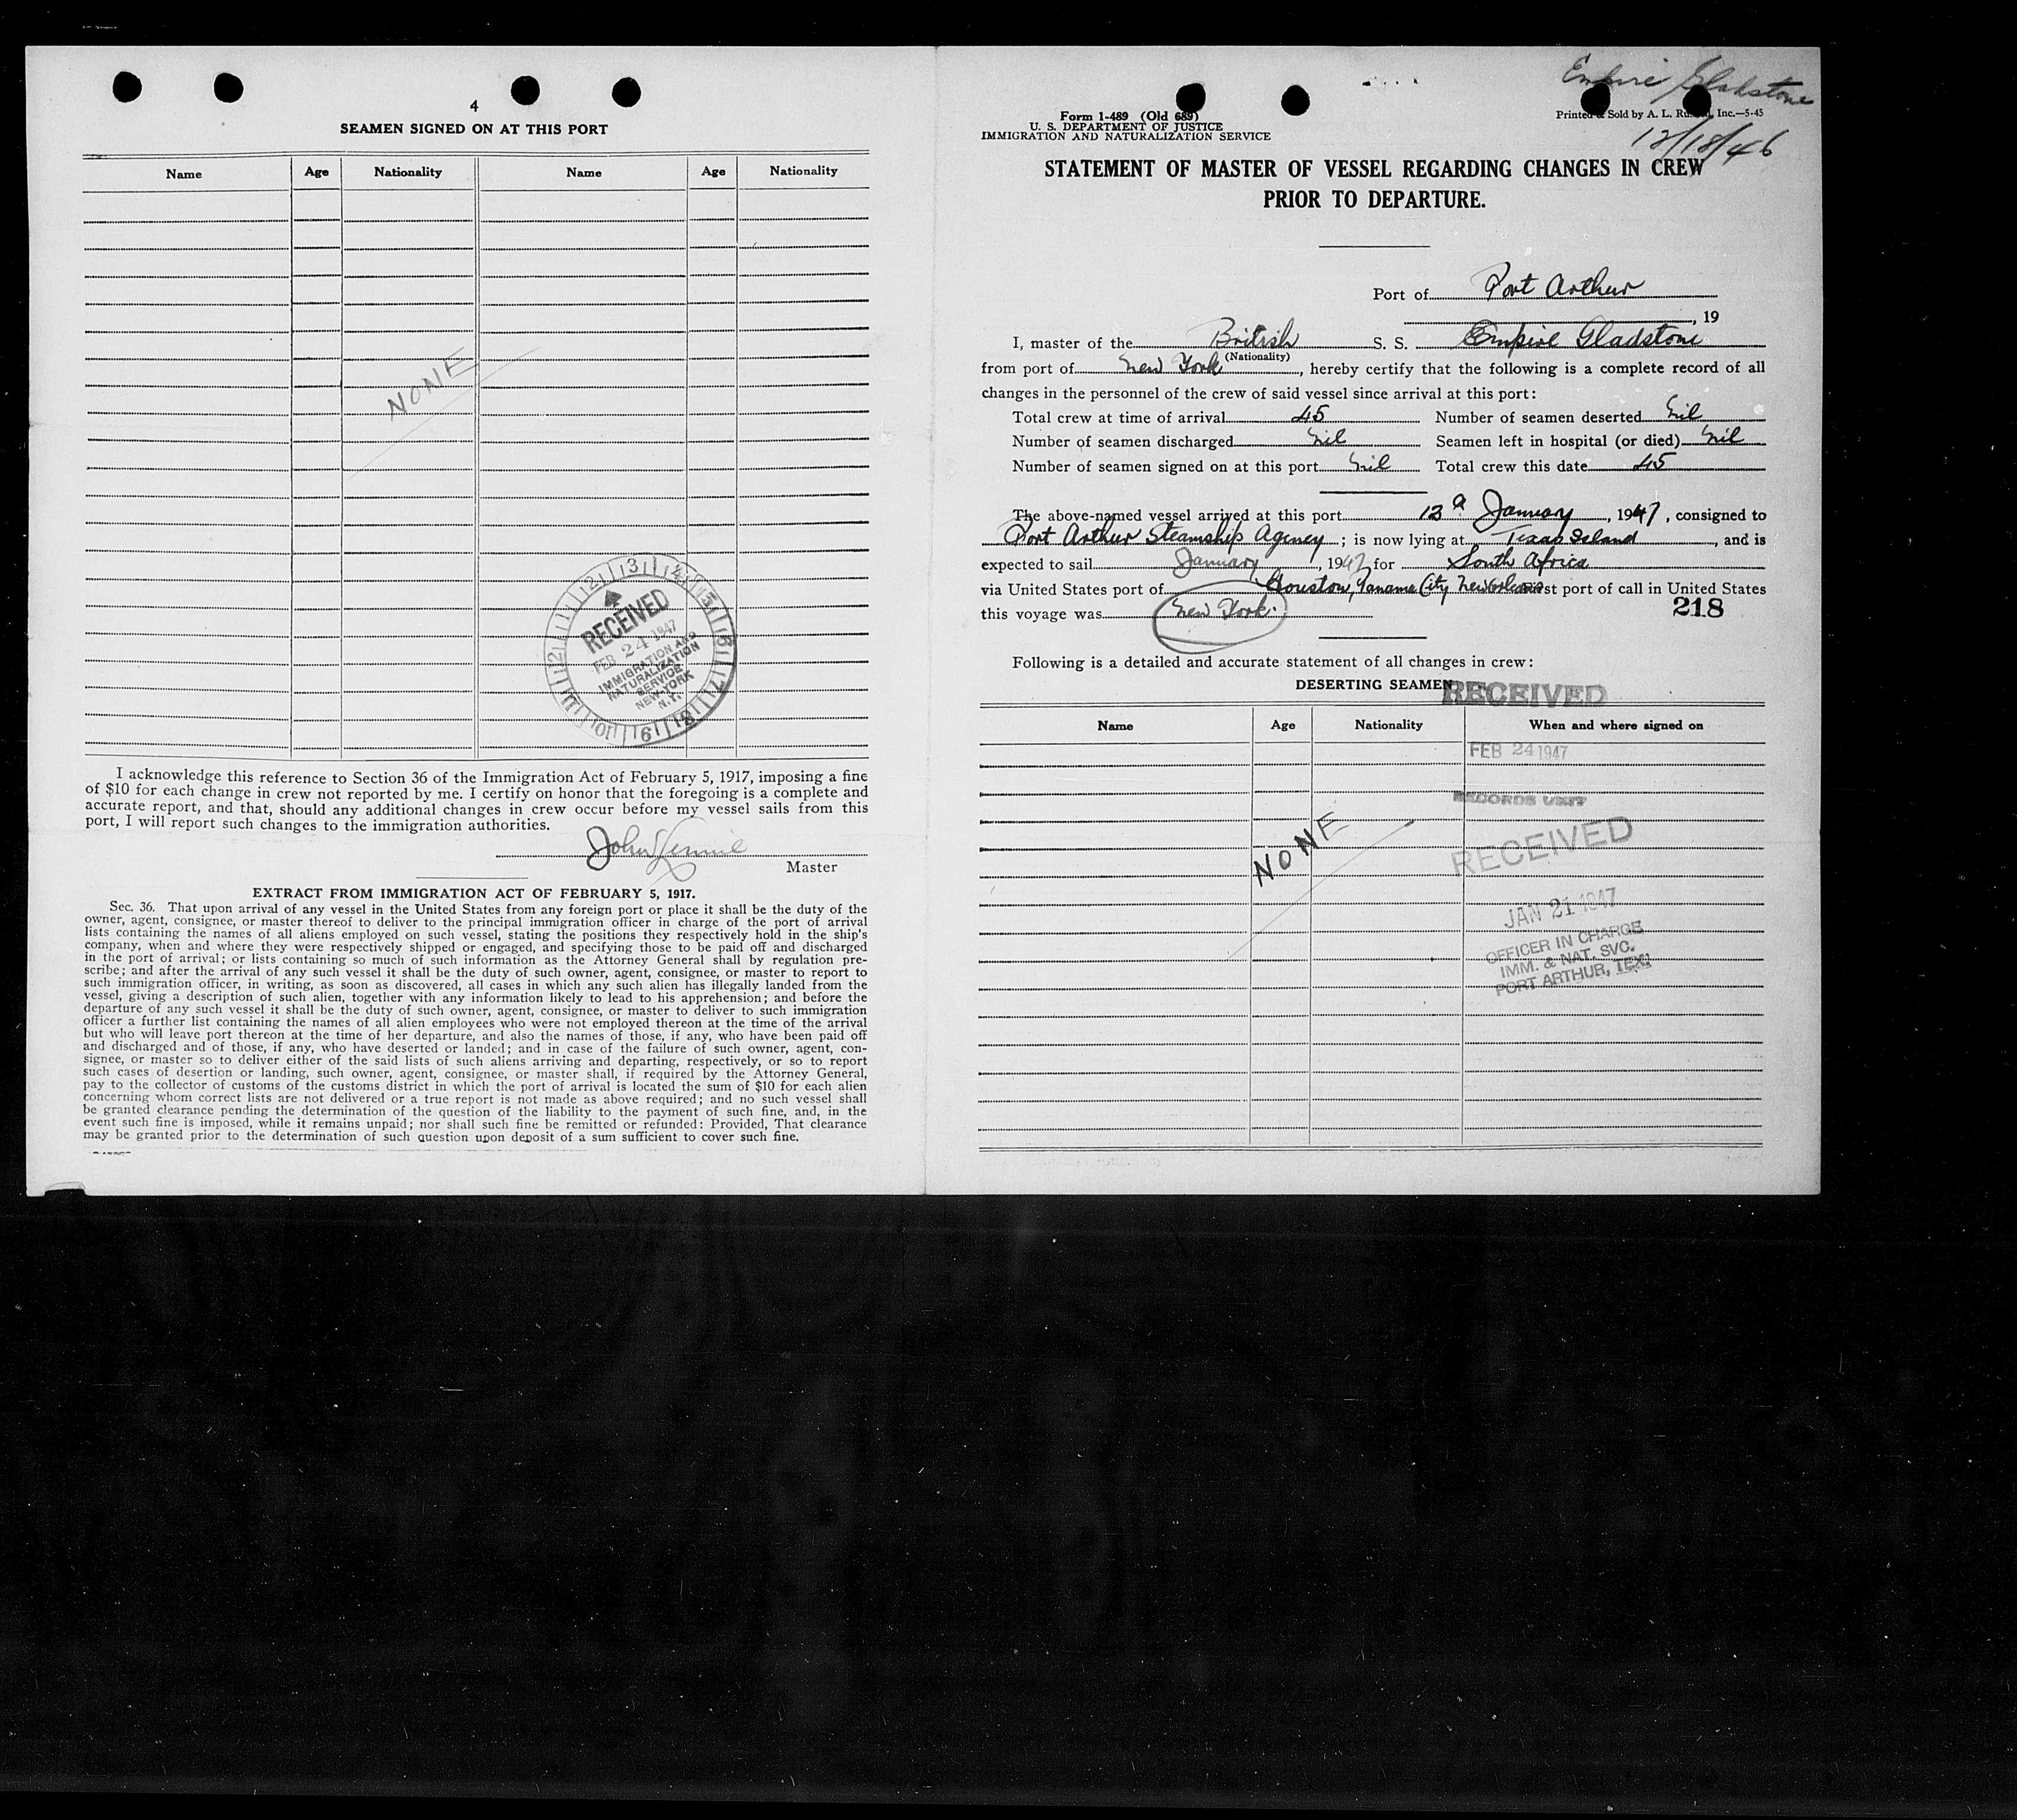 4
SEAMEN SIGNED ON AT THIS PORT
Name Age Nationality Name Age Nationality
NONE
RECEIVED
FEB 24 1947
IMMIGRATION AND
NATURALIZATION
SERVICE
NEW YORK
N.Y.
I acknowledge this reference to Section 36 of the Immigration Act of February 5, 1917, imposing a fine
of $10 for each change in crew not reported by me. I certify on honor that the foregoing is a complete and
accurate report, and that, should any additional changes in crew occur before my vessel sails from this
port, I will report such changes to the immigration authorities.
John Rennie
Master
EXTRACT FROM IMMIGRATION ACT OF FEBRUARY 5, 1917.
Sec. 36. That upon arrival of any vessel in the United States from any foreign port or place it shall be the duty of the
owner, agent, consignee, or master thereof to deliver to the principal immigration officer in charge of the port of arrival
lists containing the names of all aliens employed on such vessel, stating the positions they respectively hold in the ship's
company, when and where they were respectively shipped or engaged, and specifying those to be paid off and discharged
in the port of arrival; or lists containing so much of such information as the Attorney General shall by regulation pre-
scribe; and after the arrival of any such vessel it shall be the duty of such owner, agent, consignee, or master to report to
such immigration officer, in writing, as soon as discovered, all cases in which any such alien has illegally landed from the
vessel, giving a description of such alien, together with any information likely to lead to his apprehension; and before the
departure of any such vessel it shall be the duty of such owner, agent, consignee, or master to deliver to such immigration
officer a further list containing the names of all alien employees who were not employed thereon at the time of the arrival
but who will leave port thereon at the time of her departure, and also the names of those, if any, who have been paid off
and discharged and of those, if any, who have deserted or landed; and in case of the failure of such owner, agent, con-
signee, or master so to deliver either of the said lists of such aliens arriving and departing, respectively, or so to report
such cases of desertion or landing, such owner, agent, consignee, or master shall, if required by the Attorney General,
pay to the collector of customs of the customs district in which the port of arrival is located the sum of $10 for each alien
concerning whom correct lists are not delivered or a true report is not made as above required; and no such vessel shall
be granted clearance pending the determination of the question of the liability to the payment of such fine, and, in the
event such fine is imposed, while it remains unpaid; nor shall such fine be remitted or refunded: Provided, That clearance
may be granted prior to the determination of such question upon deposit of a sum sufficient to cover such fine.
Empire Gladstone
12/18/46
Form 1-489 (Old 689)
U. S. DEPARTMENT OF JUSTICE
IMMIGRATION AND NATURALIZATION SERVICE
Printed & Sold by A. L. Inc.—5-45
STATEMENT OF MASTER OF VESSEL REGARDING CHANGES IN CREW
PRIOR TO DEPARTURE.
Port of Port Arthur
, 19
I, master of the British S. S. Empire Gladstone
(Nationality)
from port of New York, hereby certify that the following is a complete record of all
changes in the personnel of the crew of said vessel since arrival at this port:
Total crew at time of arrival 45 Number of seamen deserted Nil
Number of seamen discharged Nil Seamen left in hospital (or died) Nil
Number of seamen signed on at this port Nil Total crew this date 45
The above-named vessel arrived at this port January, 1947, consigned to
Port Arthur Steamship Agency; is now lying at Texas Island, and is
expected to sail January, 1947 for South Africa
via United States port of Houston, Panama City New Orleans port of call in United States
this voyage was New York.
218
Following is a detailed and accurate statement of all changes in crew:
DESERTING SEAMEN
RECEIVED
Name Age Nationality When and where signed on
FEB 24 1947
RECORDS UNIT
NONE
RECEIVED
JAN 21 1947
OFFICER IN CHARGE
IMM. & NAT. SVC.
PORT ARTHUR, TEX.